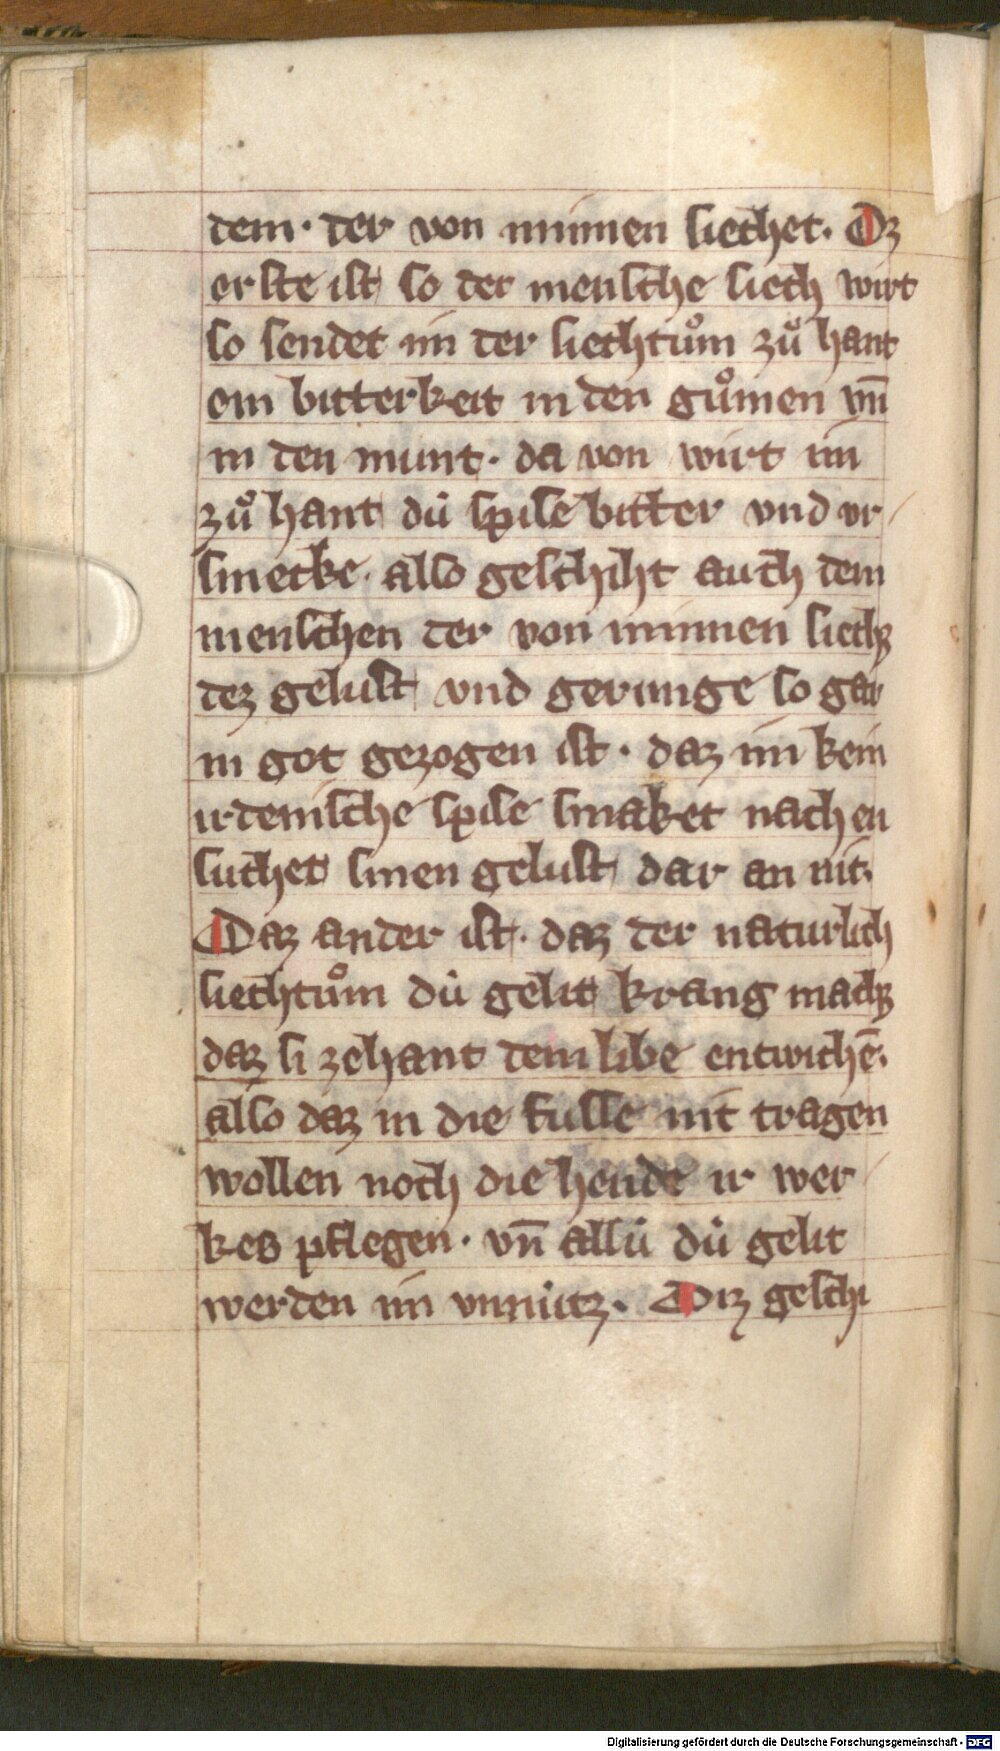 dem· der von minnen siechet. Dz
erste ist so der mensche siech wirt
so sendet im der siechtuͦm zuͦ hant
ein bitterkeit in den guͦmen vn̄
in den munt· da von wirt im
zuͦ hant dú spise bitter vnd vr/
smecke· also geschiht auch dem
menschen der von minnen siechꝫ
dez gelust vnd gerunge so gar
in got gezogen ist· daz im kein
irdenische spise smaket nach en
suchet sinen gelust dar an nit·
Daz ander ist· daz der naturlich
siechtuͦm dú gelit krang machꝫ
daz si zehant dem libe entwichē·
also daz in die fusse nit tragen
wollen noch die hende ir wer/
kes pflegen· vn̄ allú dú gelit
werden im vnnútz· Diz geschi
Digitalisierung gefördert durch die Deutsche Forschungsgemeinschaft - DFG